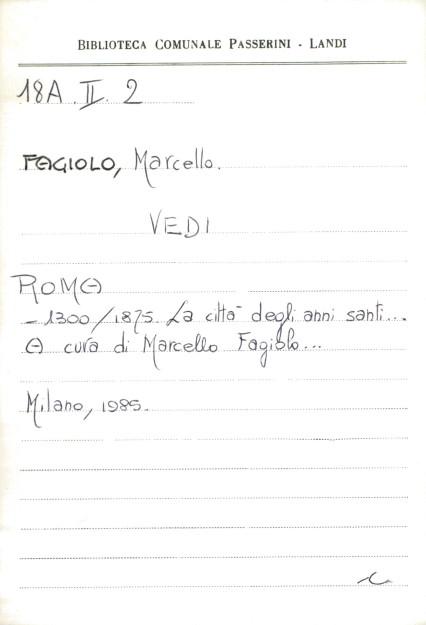 BIBLIOTECA COMUNALE PASSERINI - LANDI
18A. II. 2
FAGIOLO, Marcello.
VEDI
ROMA
- 1300/1875. La città degli anni santi...
A cura di Marcello Fagiolo...
Milano, 1985.